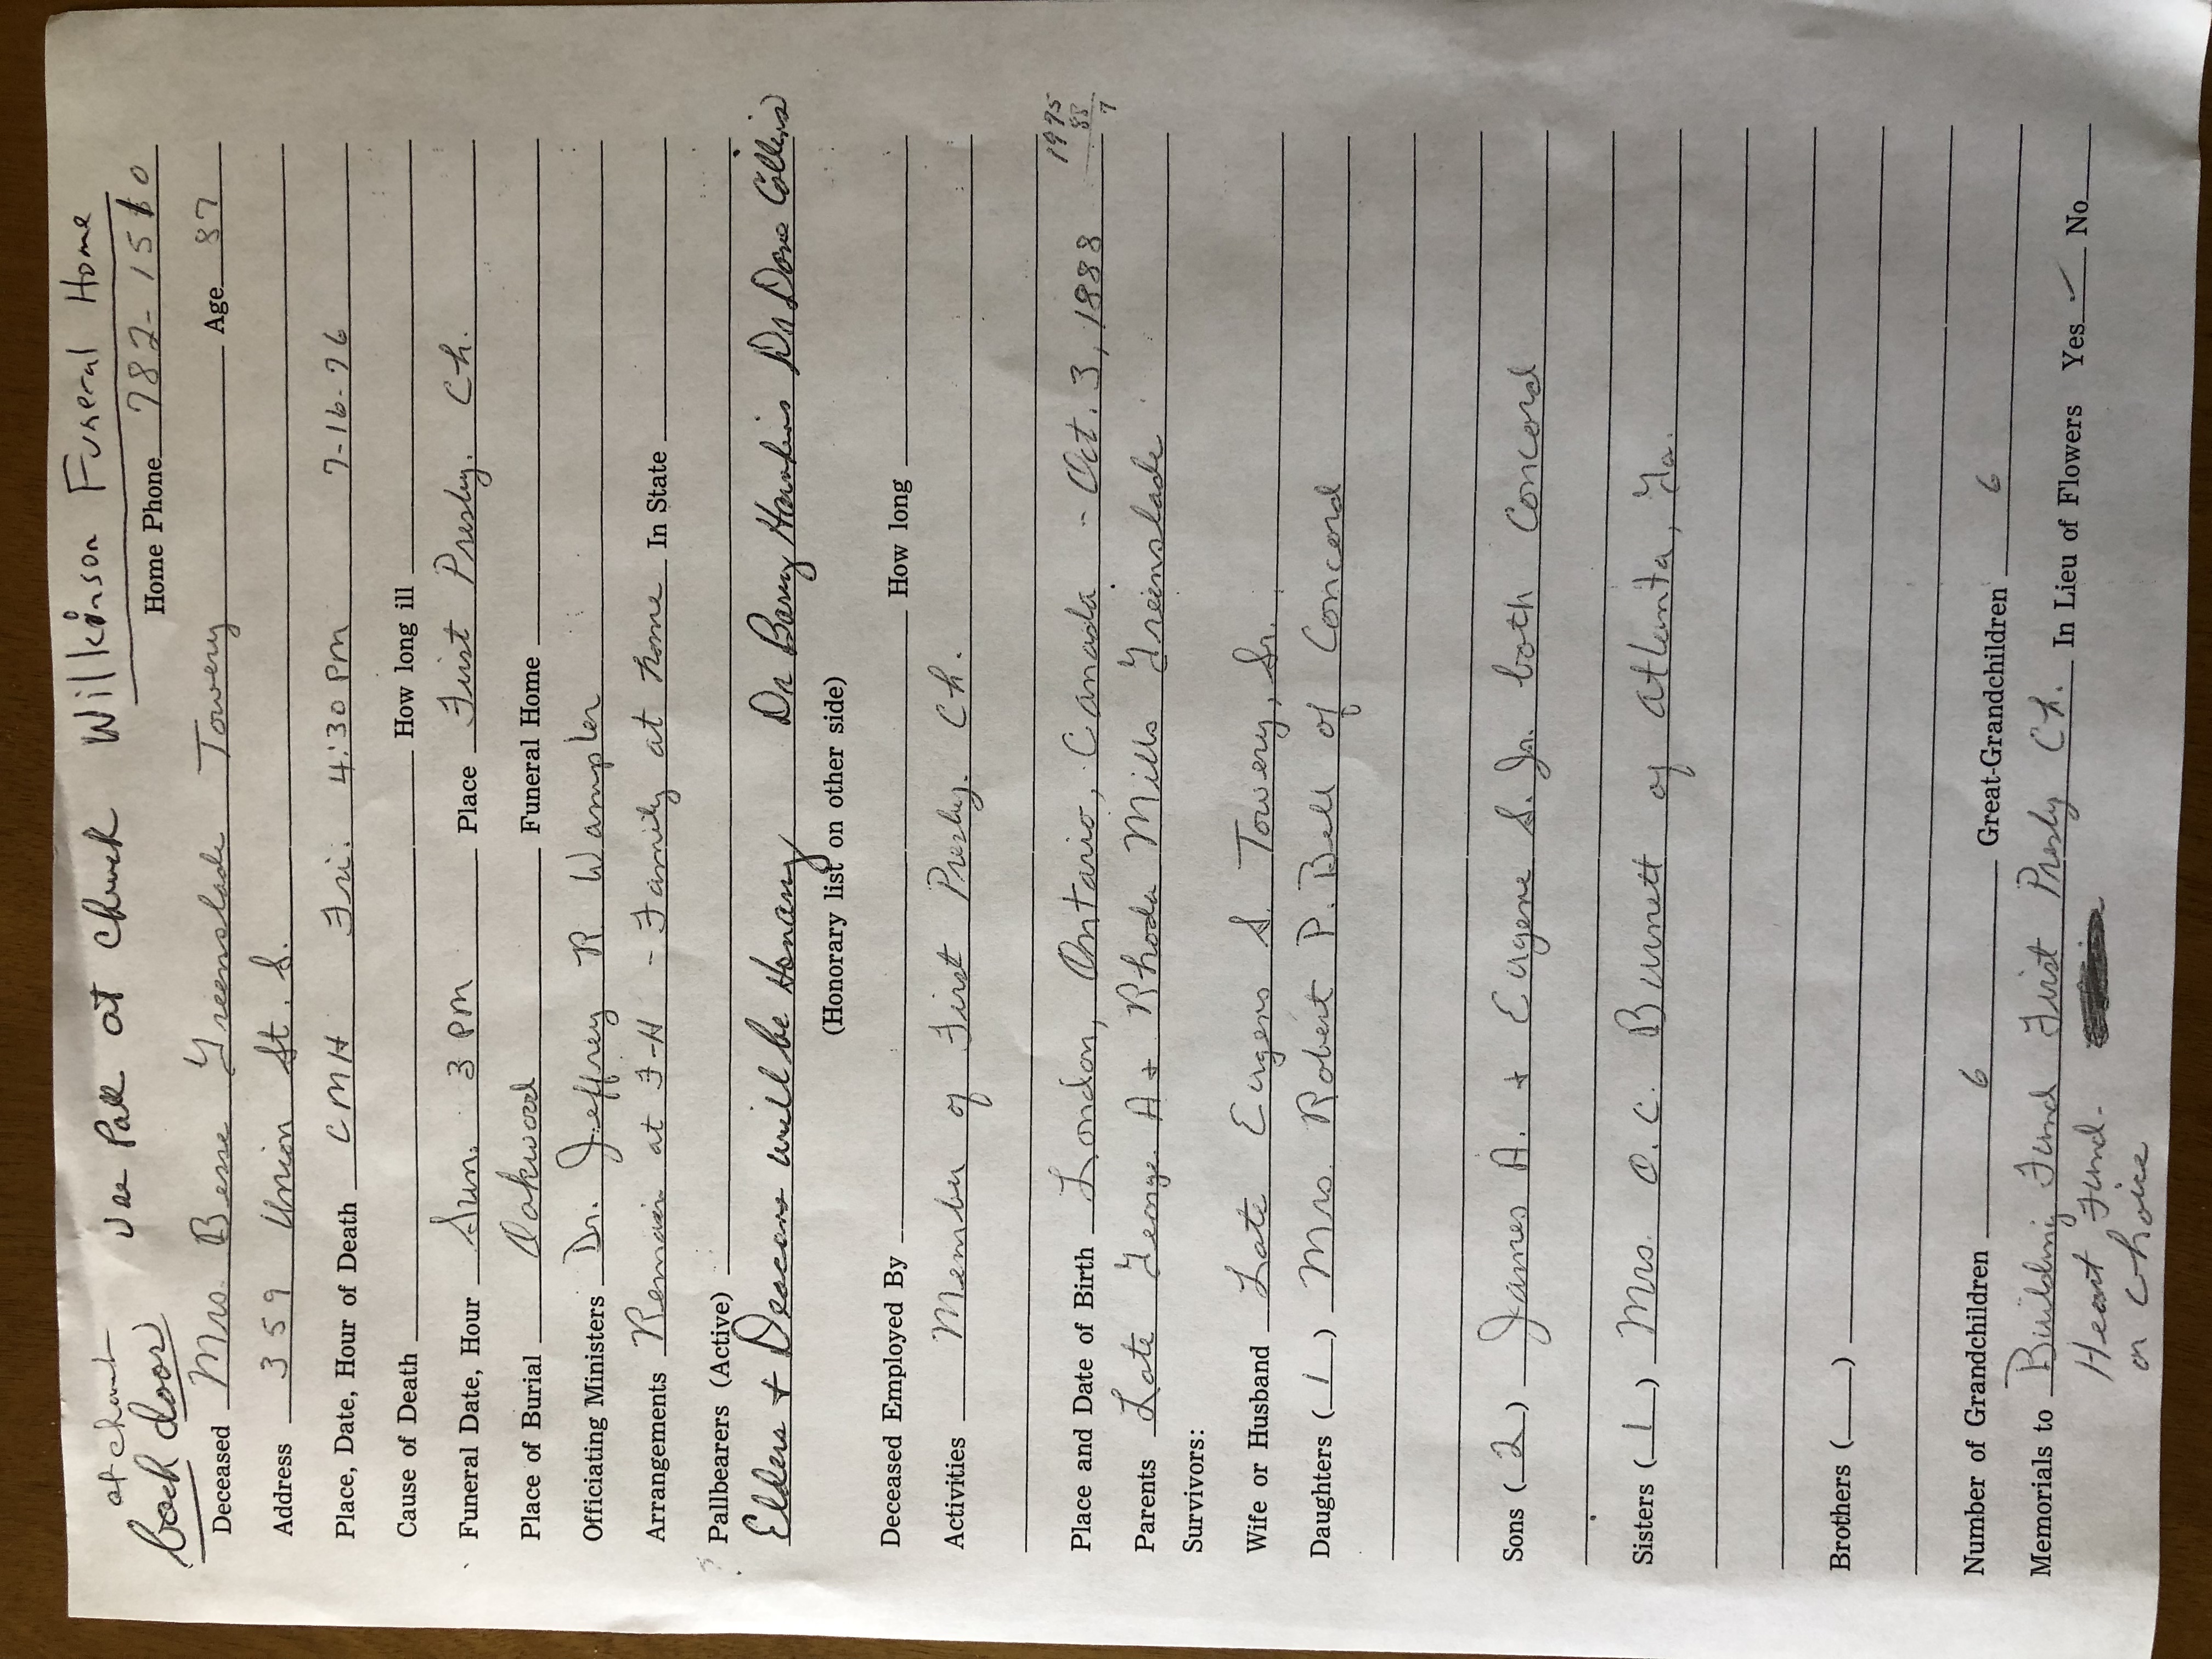 at church Use Pall at Church Wilkinson Funeral Home
back door Home Phone 782-1510
Deceased Mrs. Besse Greenslade Towery Age 87
Address 359 Union St. S.
Place, Date, Hour of Death CMH Fri. 4:30 PM 7-16-76
Cause of Death How long ill
Funeral Date, Hour Sun. 3 PM Place First Presby. Ch.
Place of Burial Oakwood Funeral Home
Officiating Ministers Dr. Jeffrey R Wampler
Arrangements Remain at F-H - Family at home In State
Pallbearers (Active)
Elders + Deacons will be Honary Dr Barry Hawkins Dr Dave Collins
(Honorary list on other side)
Deceased Employed By How long
Activities Member of First Presby. Ch.
1975
88
Place and Date of Birth London, Ontario, Canada - Oct. 3, 1888
7
Parents Late George A + Rhoda Mills Greenslade
Survivors:
Wife or Husband Late Eugene S. Towery, Sr.
Daughters (1) Mrs. Robert P. Bell of Concord
Sons (2) James A. + Eugene S. Jr. both Concord
Sisters (1) Mrs. O. C. Burnett of Atlanta, Ga.
Brothers ( )
Number of Grandchildren 6 Great-Grandchildren 6
Memorials to Building Fund First Presby Ch. In Lieu of Flowers Yes ✓ No
Heart Fund-
or choice